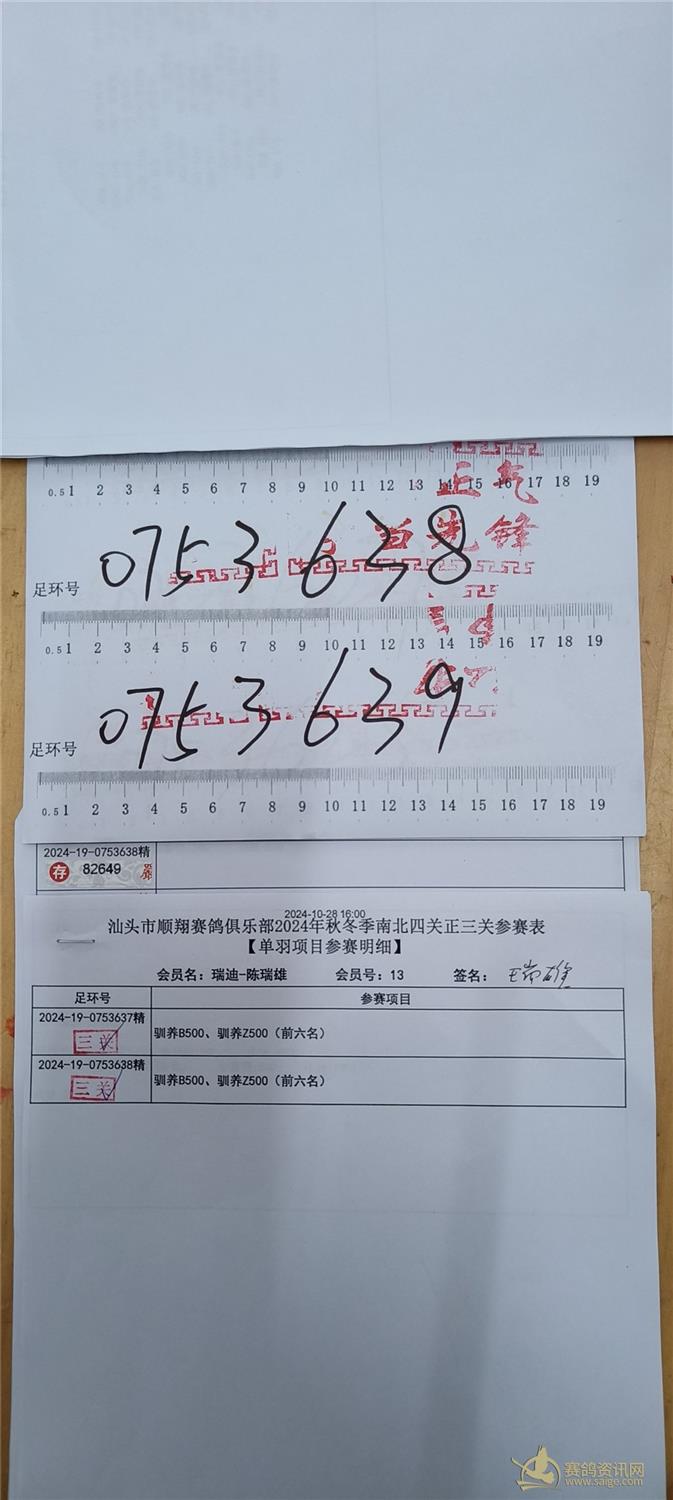 0.5 1 2 3 4 5 6 7 8 9 10 11 12 13 14 15 16 17 18 19
正气
先锋
足环号 0753638
0.5 1 2 3 4 5 6 7 8 9 10 11 12 13 14 15 16 17 18 19
足环号 0753639
0.5 1 2 3 4 5 6 7 8 9 10 11 12 13 14 15 16 17 18 19
2024-19-0753638精
存 82649
2024-10-28 16:00
汕头市顺翔赛鸽俱乐部2024年秋冬季南北四关正三关参赛表
【单羽项目参赛明细】
会员名：瑞迪-陈瑞雄 会员号：13 签名：
足环号 参赛项目
2024-19-0753637精
三关
驯养B500、驯养Z500（前六名）
2024-19-0753638精
三关
驯养B500、驯养Z500（前六名）
赛鸽资讯网
www.saige.com